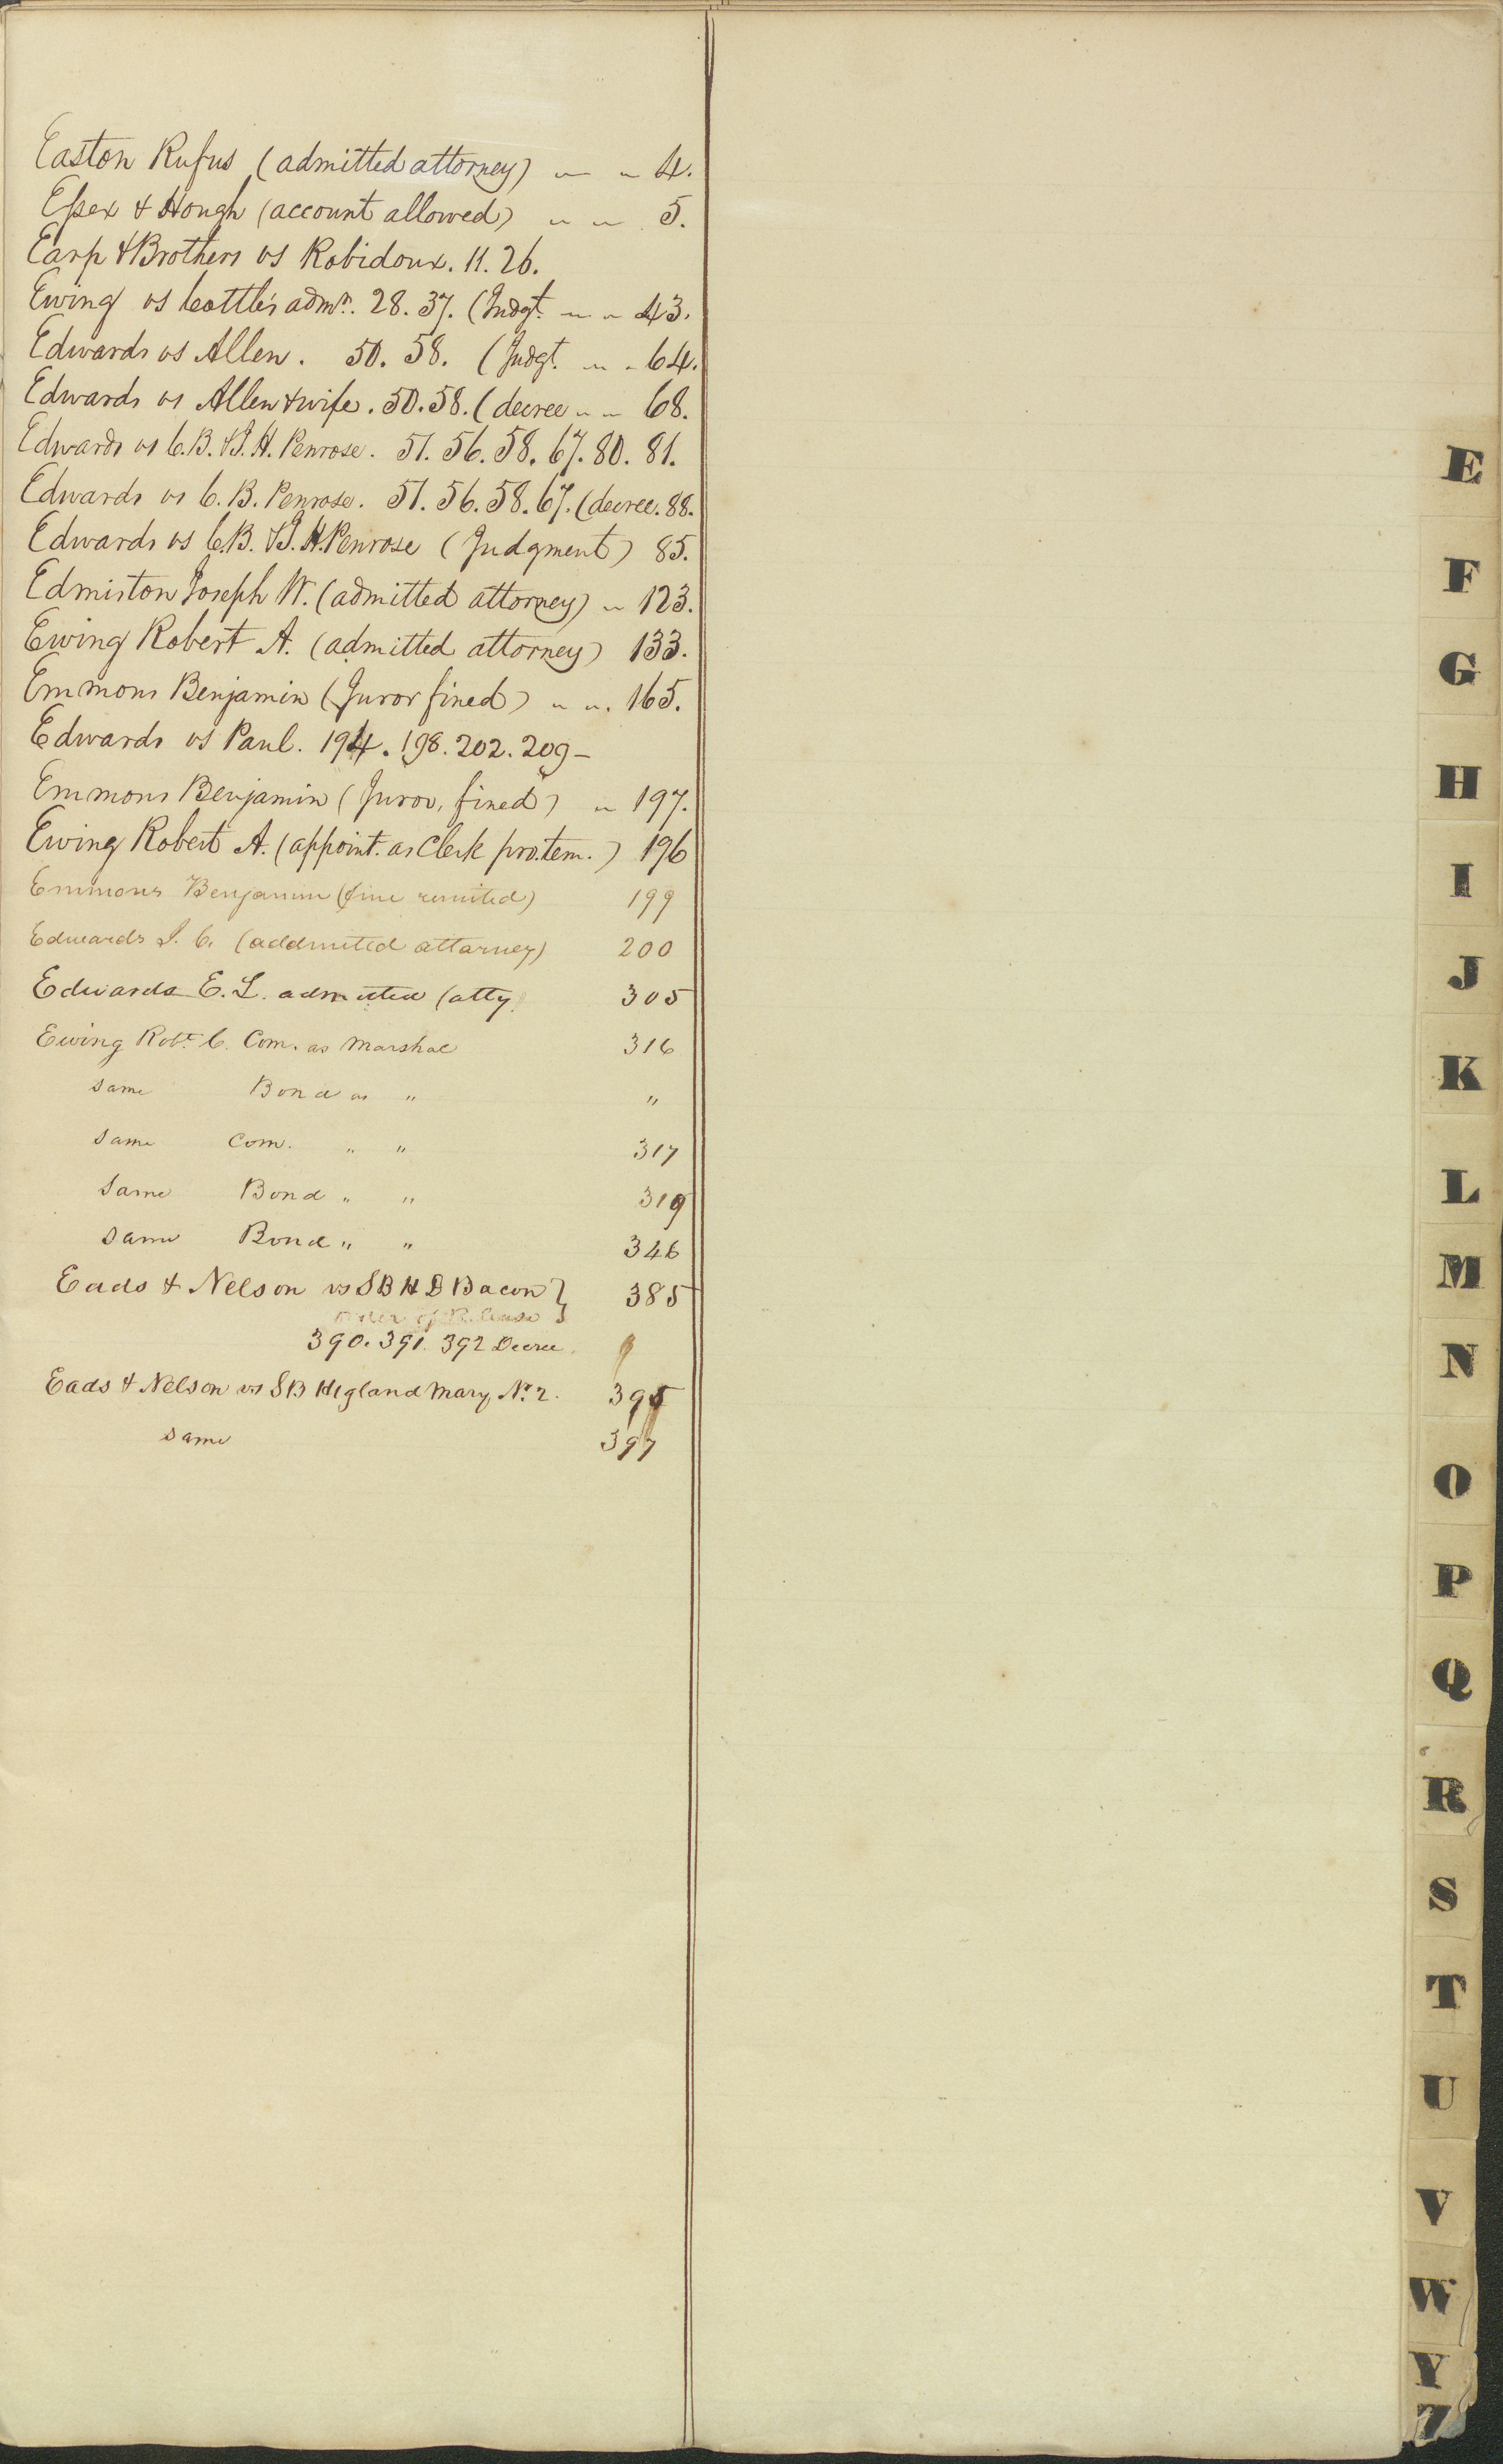 Easton Rufus (admitted attorney) " " 4.
Essex & Hough (account allowed) " " 5.
Earp & Brothers vs Robidoux. 11. 26.
Ewing vs Cottle's admr. 28. 37. (Judgt. " " 43.
Edwards vs Allen. 50. 58. (Judgt. " " 64.
Edwards vs Allen & wife. 50. 58. (decree " " 68.
Edwards vs C. B. & J. H. Penrose. 51. 56. 58. 67. 80. 81.
Edwards vs C. B. Penrose. 51. 56. 58. 67. (decree. 88.
Edwards vs C. B. & J. H. Penrose (Judgment) 85.
Edmiston Joseph W. (admitted attorney) " 123.
Ewing Robert A. (admitted attorney) 133.
Emmons Benjamin (Juror fined) " " 165.
Edwards vs Paul. 194. 198. 202. 209 -
Emmons Benjamin (Juror, fined) " 197.
Ewing Robert A. (appoint. as Clerk pro. tem.) 196
Emmons Benjamin (fine remited) 199
Edwards J. C. (addmited attorney) 200
Edwards E. L. admitted (atty 305
Ewing Robt. C. Com. as Marshal 316
same Bond as " "
same Com. " " 317
same Bond " " 319
same Bond " " 346
Eads & Nelson vs S B H D Bacon } 385
order of Release
390. 391. 392 Decree.
Eads & Nelson vs S B Higland Mary No. 2. 395
same 397
E
F
G
H
I
J
K
L
M
N
O
P
Q
R
S
T
U
V
W
Y
Z